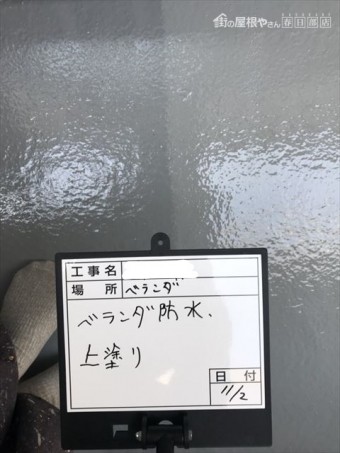 街の屋根やさん春日部店
工事名
場所 ベランダ
ベランダ防水、
上塗り
日付
11/2